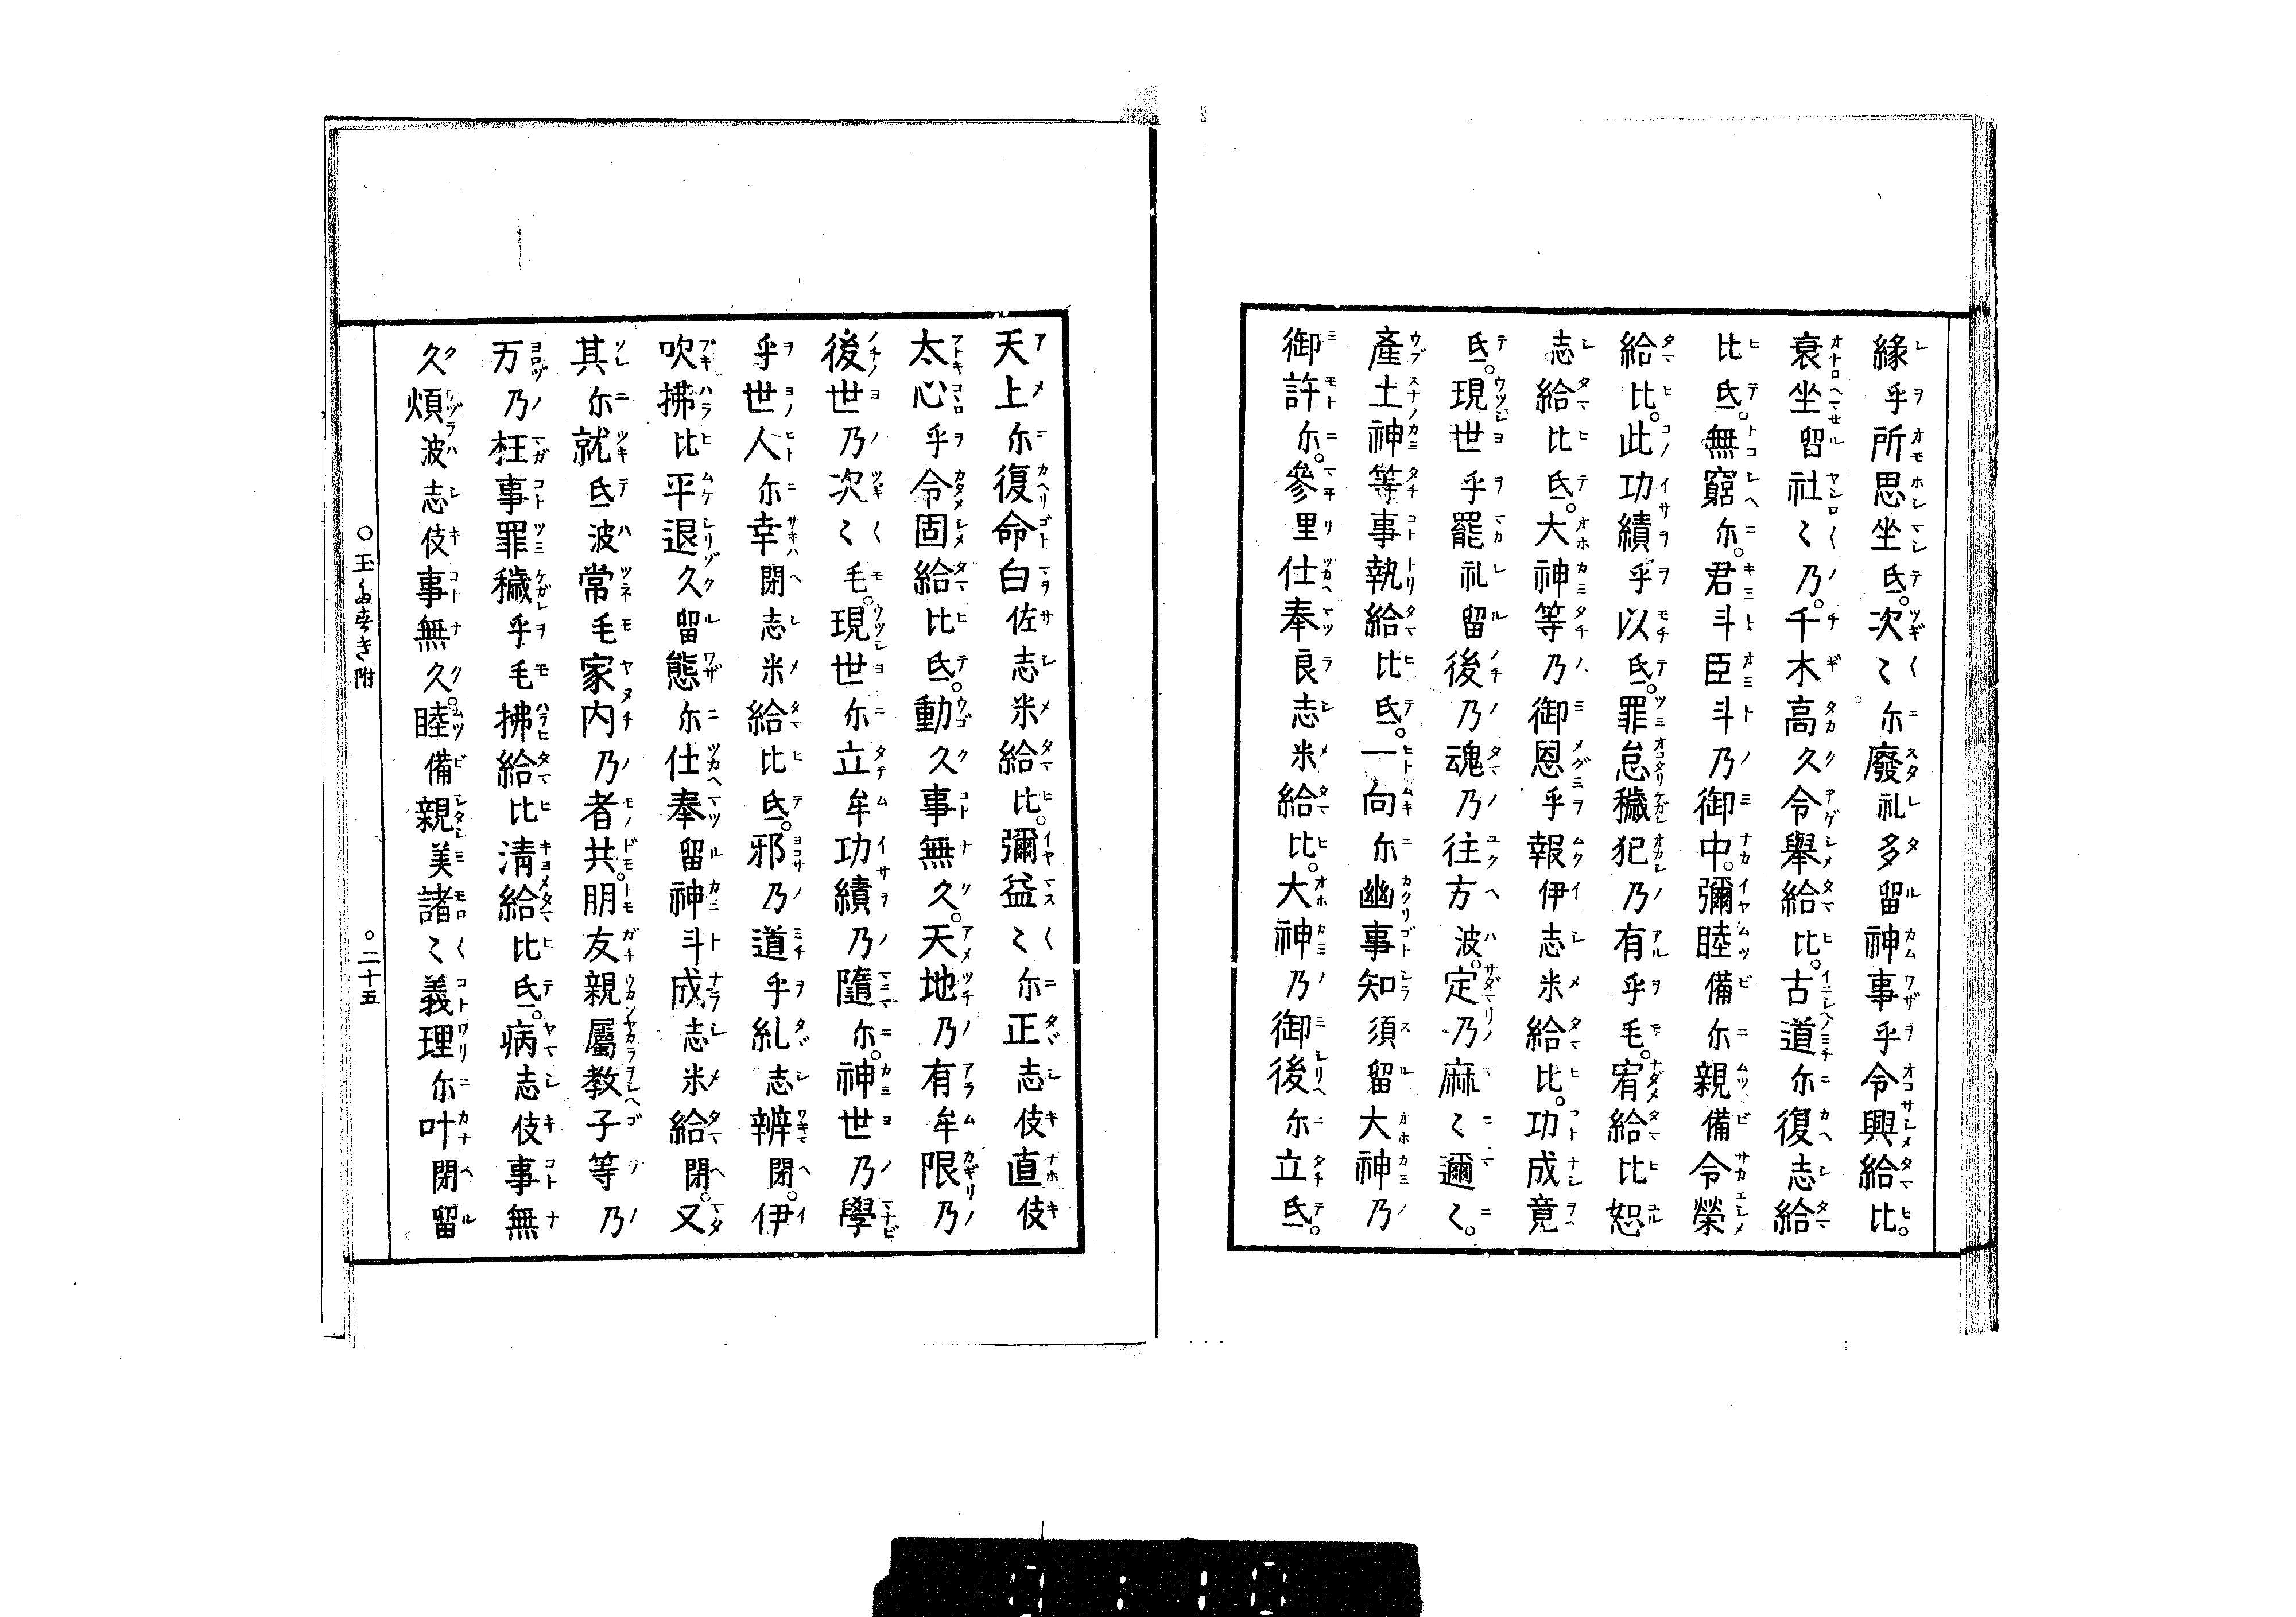 緣乎所思坐氐。次〻尓廢礼多留神事乎令興給比。
衰坐留社〻乃。千木高久令擧給比。古道尓復志給
比氐。無窮尓。君斗臣斗乃御中。彌睦備尓親備令榮
給比。此功績乎以氐。罪怠穢犯乃有乎毛。宥給比恕
志給比氐。大神等乃御恩乎報伊志米給比。功成竟
氐。現世乎罷礼留後乃魂乃往方波。定乃麻〻邇〻。
產土神等事執給比氐。一向尓幽事知須留大神乃
御許尓。參里仕奉良志米給比。大神乃御後尓立氐。
天上尓復命白佐志米給比。彌益〻尓正志伎直伎
太心乎令固給比氐。動久事無久。天地乃有牟限乃
後世乃次〻毛。現世尓立牟功績乃隨尓。神世乃學
乎世人尓幸閉志米給比氐。邪乃道乎糺志辨閉。伊
吹拂比平退久留態尓仕奉留神斗成志米給閉。又
其尓就氐波常毛家内乃者共。朋友親屬教子等乃
万乃枉事罪穢乎毛拂給比淸給比氐。病志伎事無
久煩波志伎事無久。睦備親美諸〻義理尓叶閉留
○玉多春き附 ○二十五